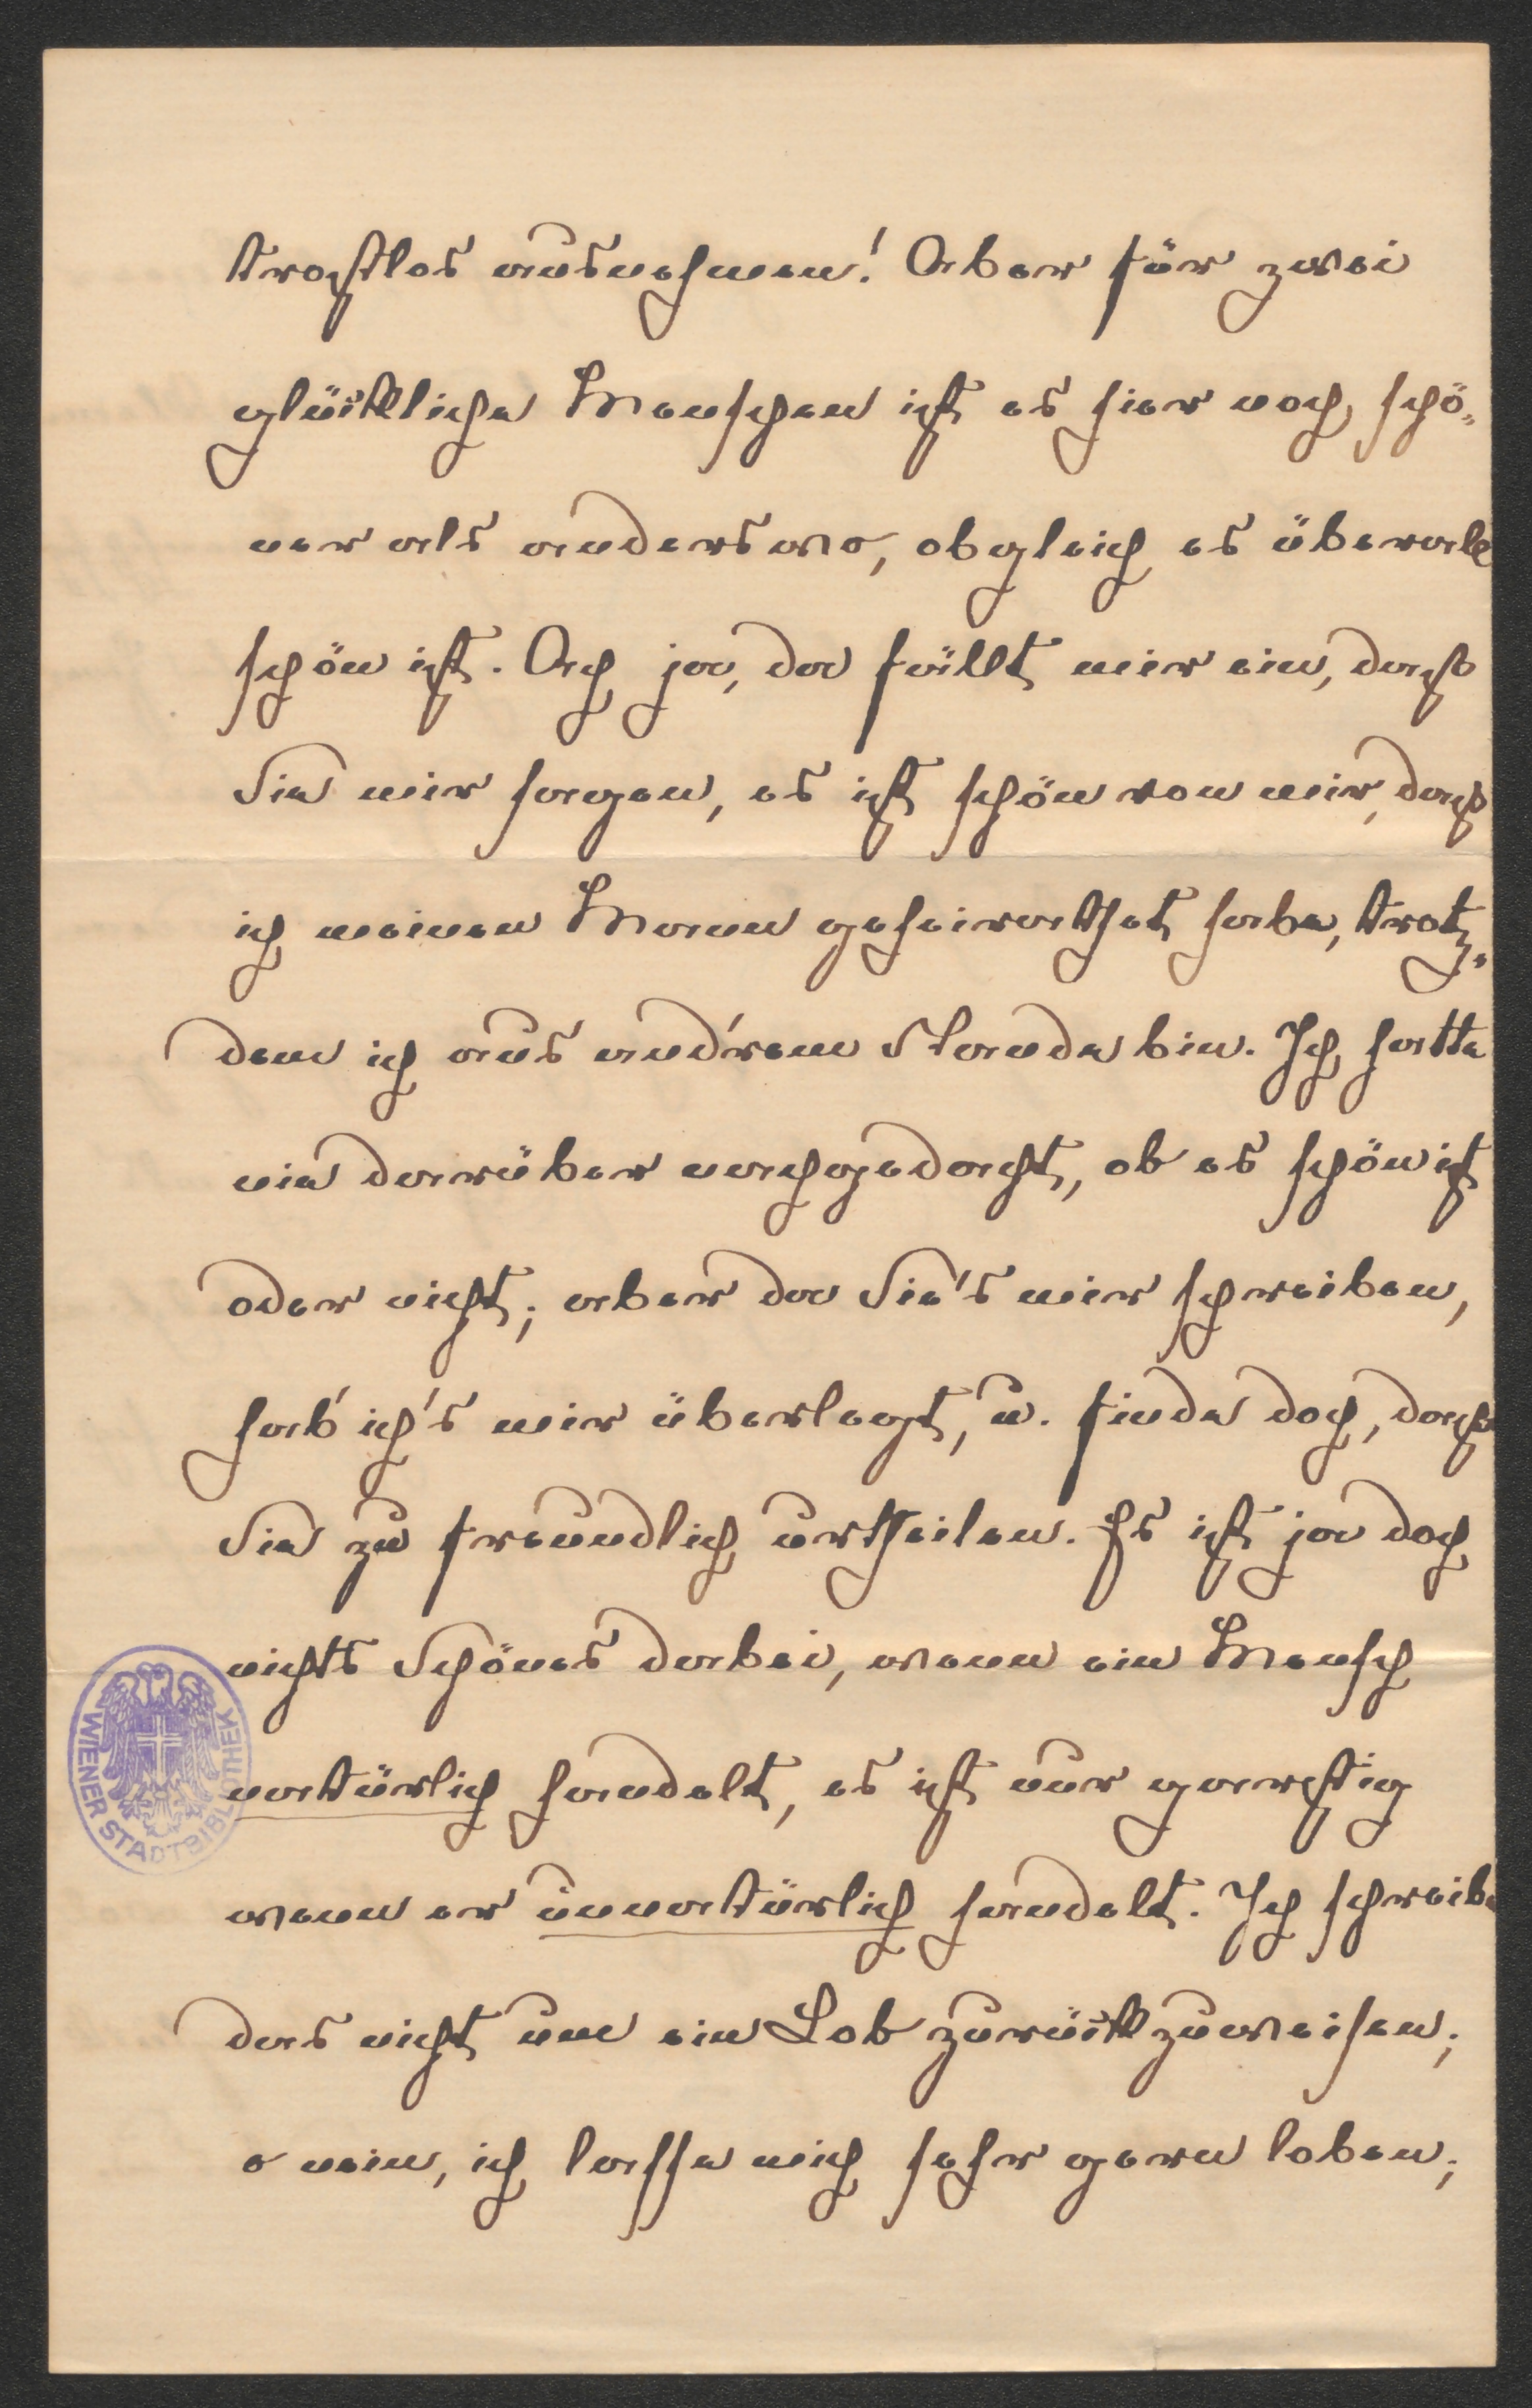 trostlos ausnehmen! Aber für zwei
glückliche Menschen ist es hier noch schö-
ner als anderswo, obgleich es überall
schön ist. Ach ja, da fällt mir ein, daß
Sie mir sagen, es ist schön von mir, daß
ich meinen Mann geheirathet habe, trotz-
dem ich aus and'rem Stande bin. Ich hatte
nie darüber nachgedacht, ob es schön ist
oder nicht; aber da Sie's mir schreiben,
hab' ich's mir überlegt, u. finde doch, daß
Sie zu freundlich urtheilen. Es ist ja doch
nichts Schönes dabei, wenn ein Mensch
natürlich handelt, es ist nur garstig
wenn er unnatürlich handelt. Ich schreibe
das nicht um ein Lob zurückzuweisen;
o nein, ich lasse mich sehr gern loben;
WIENER STADTBIBLIOTHEK